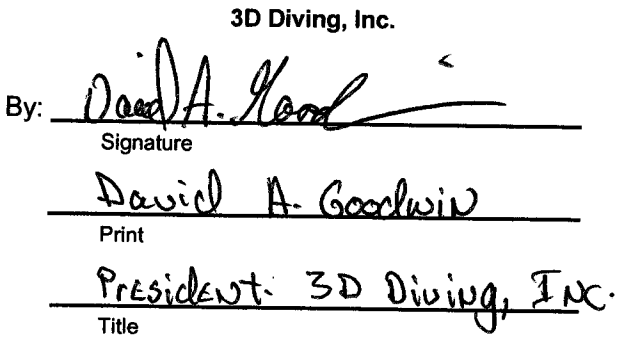 3D Diving, Inc.
By: David A. Good
Signature
David A. Goodwin
Print
President. 3D Diving, Inc.
Title